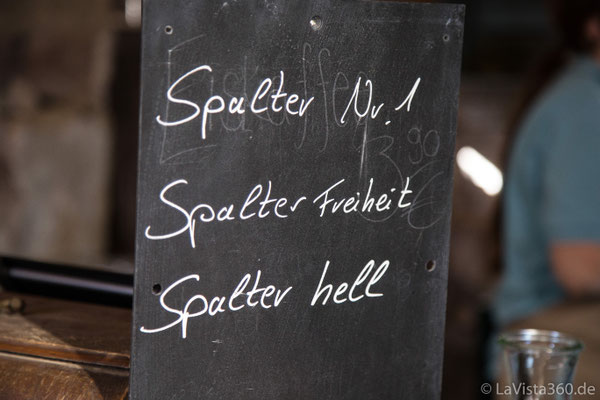 Eiskaffee
3,90 €
Spalter Nr. 1
Spalter Freiheit
Spalter hell
© LaVista360.de